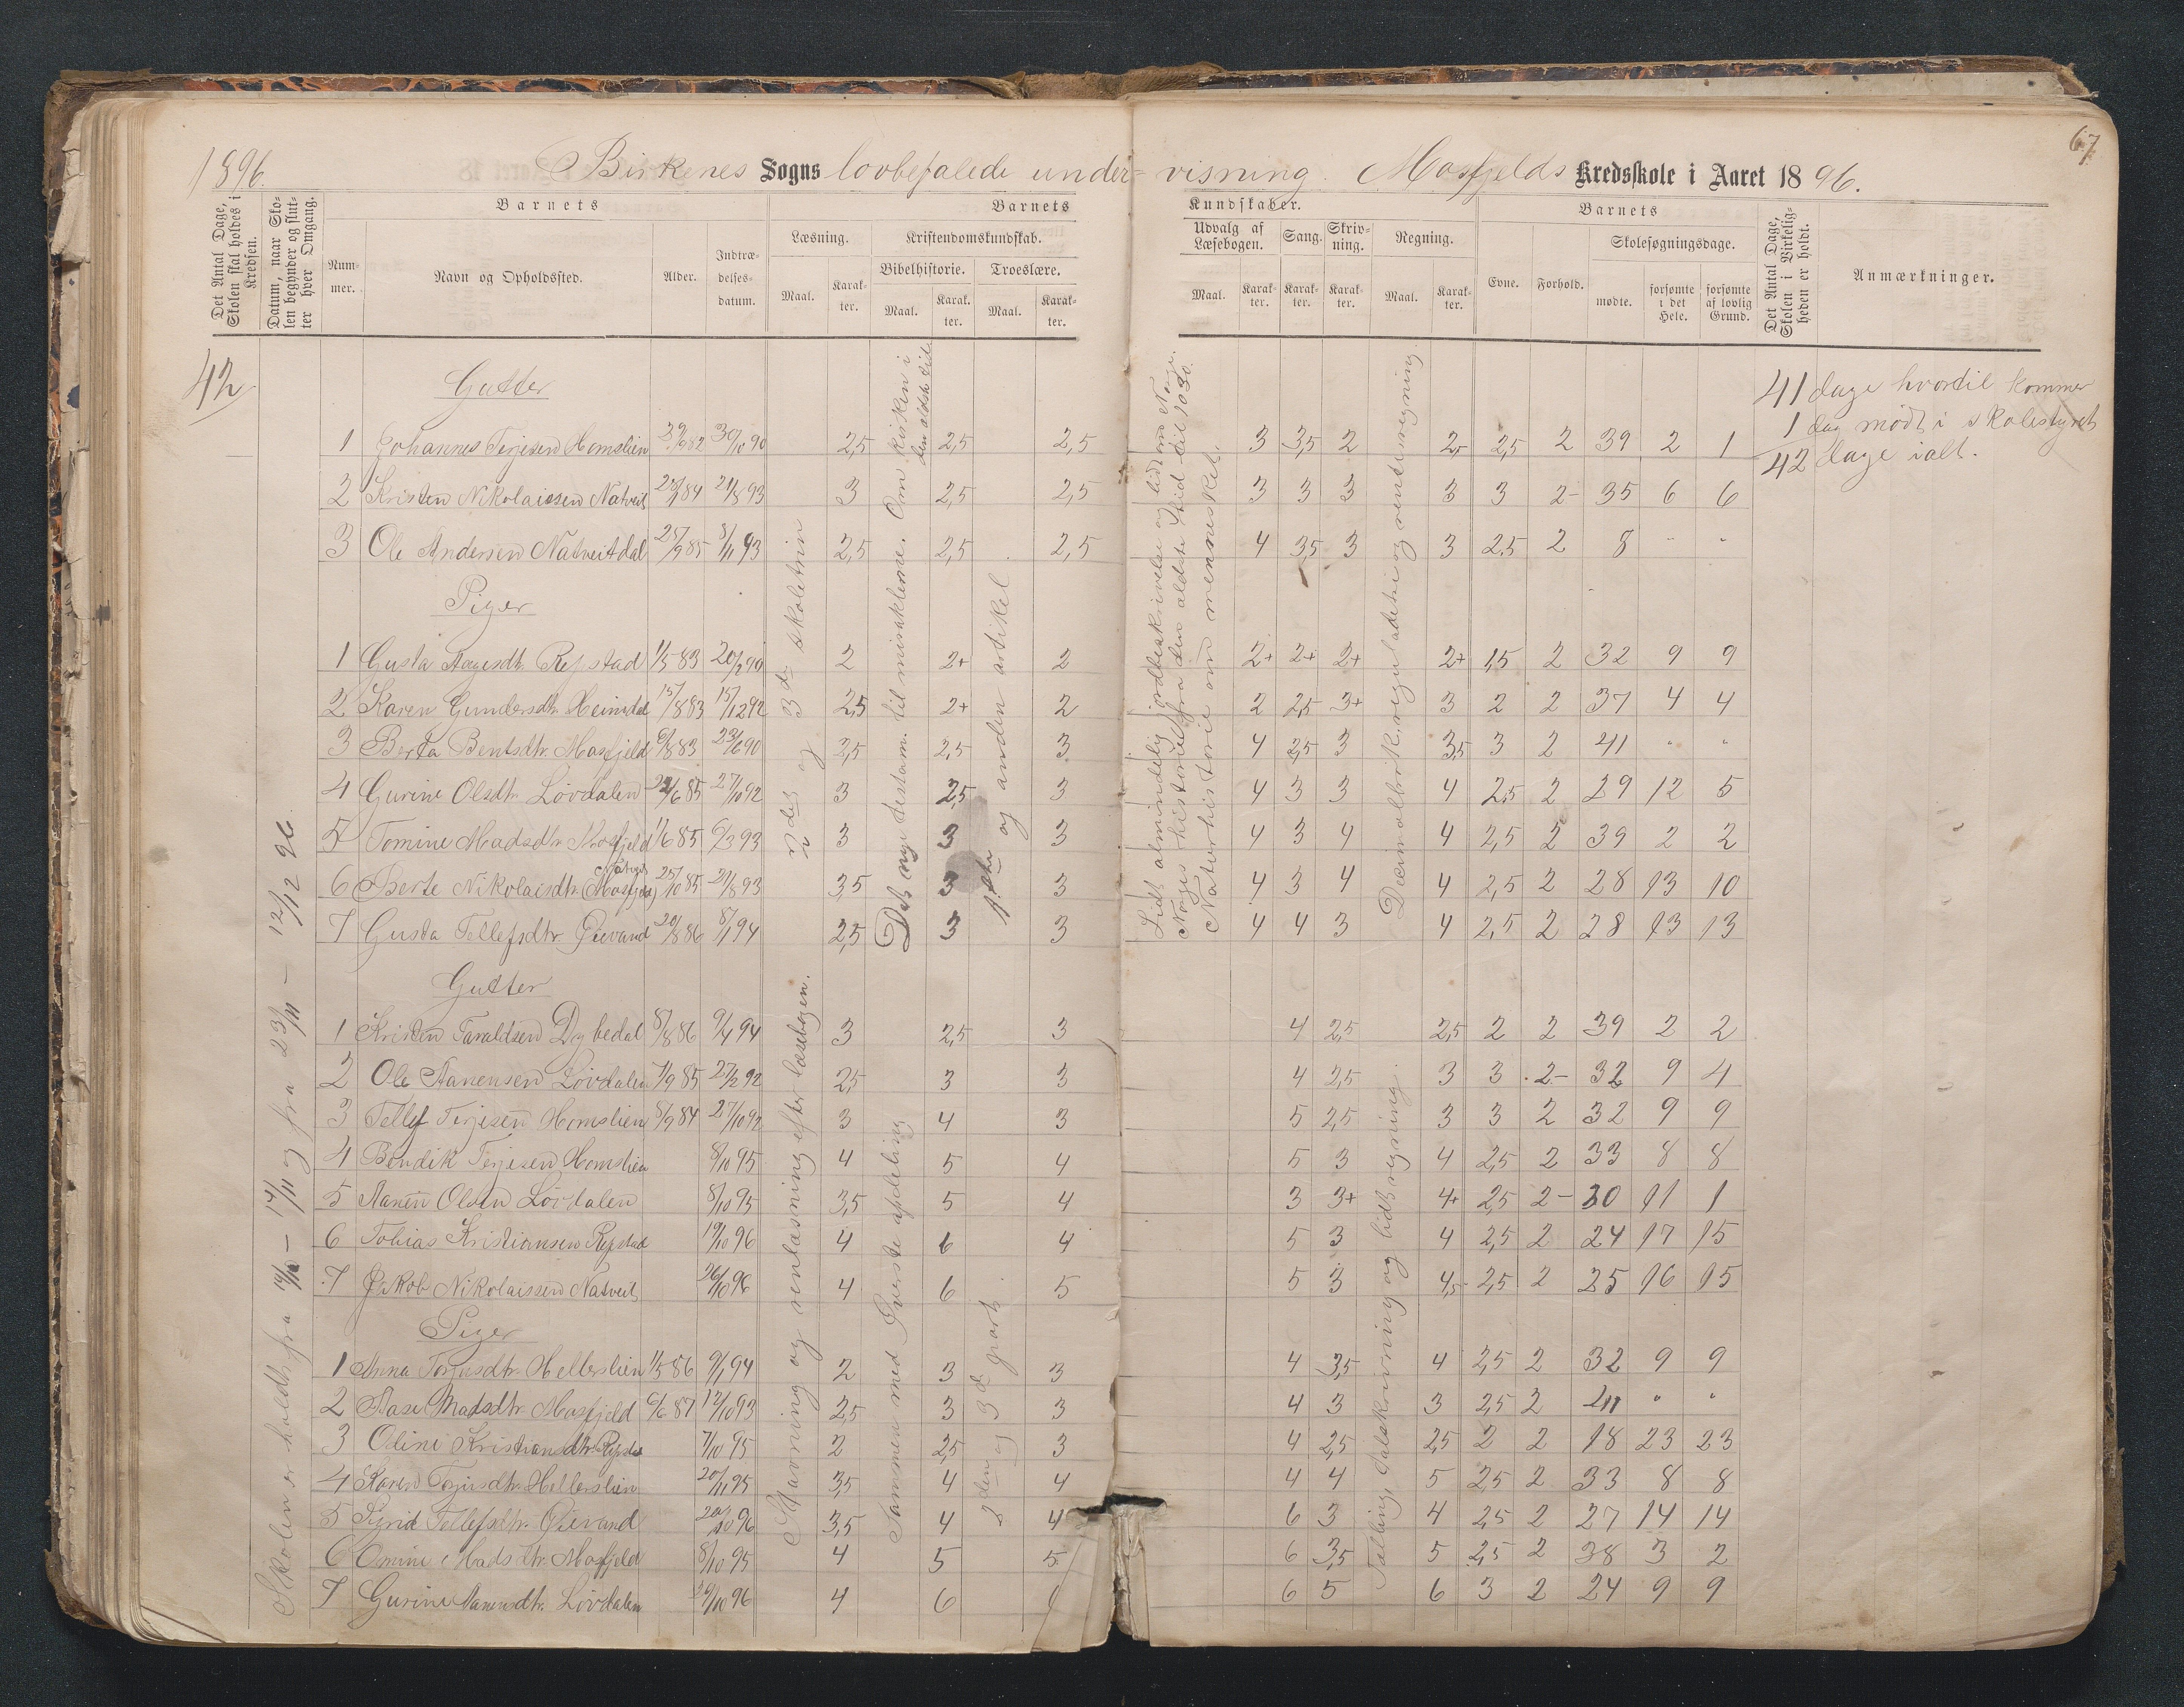 67
1896.
Birkenes Sogns lovbefalede undervisning. Mosfjelds Kredsskole i Aaret 1896.
Det Antal Dage, Skolen skal holdes i Kredsen.
Datum, naar Skolen begynder og slutter hver Omgang.
Barnets
Nummer.
Navn og Opholdssted.
Alder.
Indtrædelsesdatum.
Barnets Kundskaber.
Læsning.
Maal.
Karakter.
Kristendomskundskab.
Bibelhistorie.
Maal.
Karakter.
Troeslære.
Maal.
Karakter.
Udvalg af Læsebogen.
Maal.
Karakter.
Sang.
Karakter.
Skrivning.
Karakter.
Regning.
Maal.
Karakter.
Barnets
Evne.
Forhold.
Skolesøgningsdage.
mødte.
forsømte i det Hele.
forsømte af lovlig Grund.
Det Antal Dage, Skolen i Virkeligheden er holdt.
Anmærkninger.
42
Skolen er holdt fra 14/10 – 17/11 og fra 23/11 – 12/12 96.
41 dage hvortil kommer
1 dag mødt i skolestyret
42 dage ialt.
2det og 3die skoletrin
Det nye testam. til miraklerne. Om kirken i den ældste tid.
1ste og anden artikel
Lidt almindelig jordbeskrivelse og lidt om Norge.
Norges historie fra den ældste tid til 1030.
Naturhistorie om mennesket.
Decimalbrøk, reguladetri og rentesregning.
Gutter
1 Johannes Terjesen Homslien 29/9 82 30/10 90 2,5 2,5 2,5 3 3,5 2 2,5 2,5 2 39 2 1
2 Kristen Nikolaissen Natveit 23/1 84 21/8 93 3 2,5 2,5 3 3 3 3 3 2- 35 6 6
3 Ole Andersen Natveitdal 25/9 85 8/11 93 2,5 2,5 2,5 4 3,5 3 3 2,5 2 8 " "
Piger
1 Gusta Aagesdtr. Repstad 1/5 83 20/2 90 2 2+ 2 2+ 2+ 2+ 2+ 1,5 2 32 9 9
2 Karen Gundersdtr. Heimdal 15/8 83 15/12 92 2,5 2+ 2 2 2,5 3+ 3 2 2 37 4 4
3 Berta Bentsdtr. Mosfjeld 6/8 83 23/6 90 2,5 2,5 3 4 2,5 3 3,5 3 2 41 " "
4 Gurine Olsdtr. Løvdalen 22/6 85 27/10 92 3 2,5 3 4 3 3 4 2,5 2 29 12 5
5 Tomine Madsdtr. Mosfjeld 1/6 85 6/3 93 3 3 3 4 3 4 4 2,5 2 39 2 2
6 Berte Nikolaisdtr. (Mosfjeld) Natveit 25/10 85 21/8 93 3,5 3 3 4 3 4 4 2,5 2 28 13 10
7 Gusta Tellefsdtr. Øievand 20/8 86 8/1 94 2,5 3 3 4 4 3 4 2,5 2 28 13 13
Stavning og renlæsning efter læsebogen.
Sammen med øverste afdeling
2den og 3die part.
Tælling, talskrivning og lidt regning.
Gutter
1 Kristen Taraldsen Dybedal 8/8 86 9/4 94 3 2,5 3 4 2,5 2,5 2 2 39 2 2
2 Ole Aanensen Løvdalen 7/9 85 27/2 92 2,5 3 3 4 2,5 3 3 2- 32 9 4
3 Tellef Terjesen Homslien 8/9 84 27/10 92 3 4 3 5 2,5 3 3 2 32 9 9
4 Bendik Terjesen Homslien 8/10 95 4 5 4 5 3 4 2,5 2 33 8 8
5 Aanen Olsen Løvdalen 8/10 95 3,5 5 4 3 3+ 4+ 2,5 2- 30 11 1
6 Tobias Kristiansen Repstad 19/10 96 4 6 4 5 3 4 2,5 2 24 17 15
7 Jakob Nikolaissen Natveit 26/10 96 4 6 5 5 3 4,5 2,5 2 25 16 15
Piger
1 Anna Torjusdtr. Hellerslien 1/5 86 9/1 94 2 3 3 4 3,5 4 2,5 2 32 9 9
2 Aase Madsdtr Mosfjeld 6/6 87 12/10 93 2,5 3 3 4 3 3 2,5 2 41 " "
3 Oline Kristiansdtr. Repstad 7/10 95 2 2,5 3 4 2,5 2,5 2 2 18 23 23
4 Karen Torjusdtr. Hellerslien 20/11 95 3,5 4 4 4 4 5 2,5 2 33 8 8
5 Sigrid Tellefsdtr. Øievand 20/10 96 3,5 4 4 6 3 4 2,5 2 27 14 14
6 Omine Madsdtr. Mosfjeld 8/10 95 4 5 5 6 3,5 5 2,5 2 38 3 2
7 Gurine Aanensdtr. Løvdalen 29/10 96 4 6 6 5 6 3 2 24 9 9